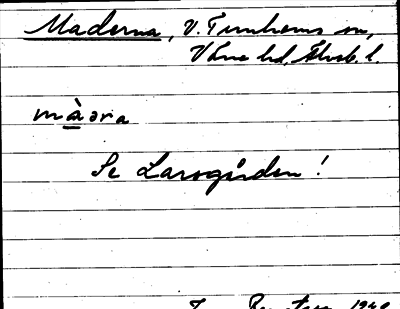 Maderna, V. Tunhems sn,
Väne hd, Älvsb. l.
màərna
Se Larsgården!